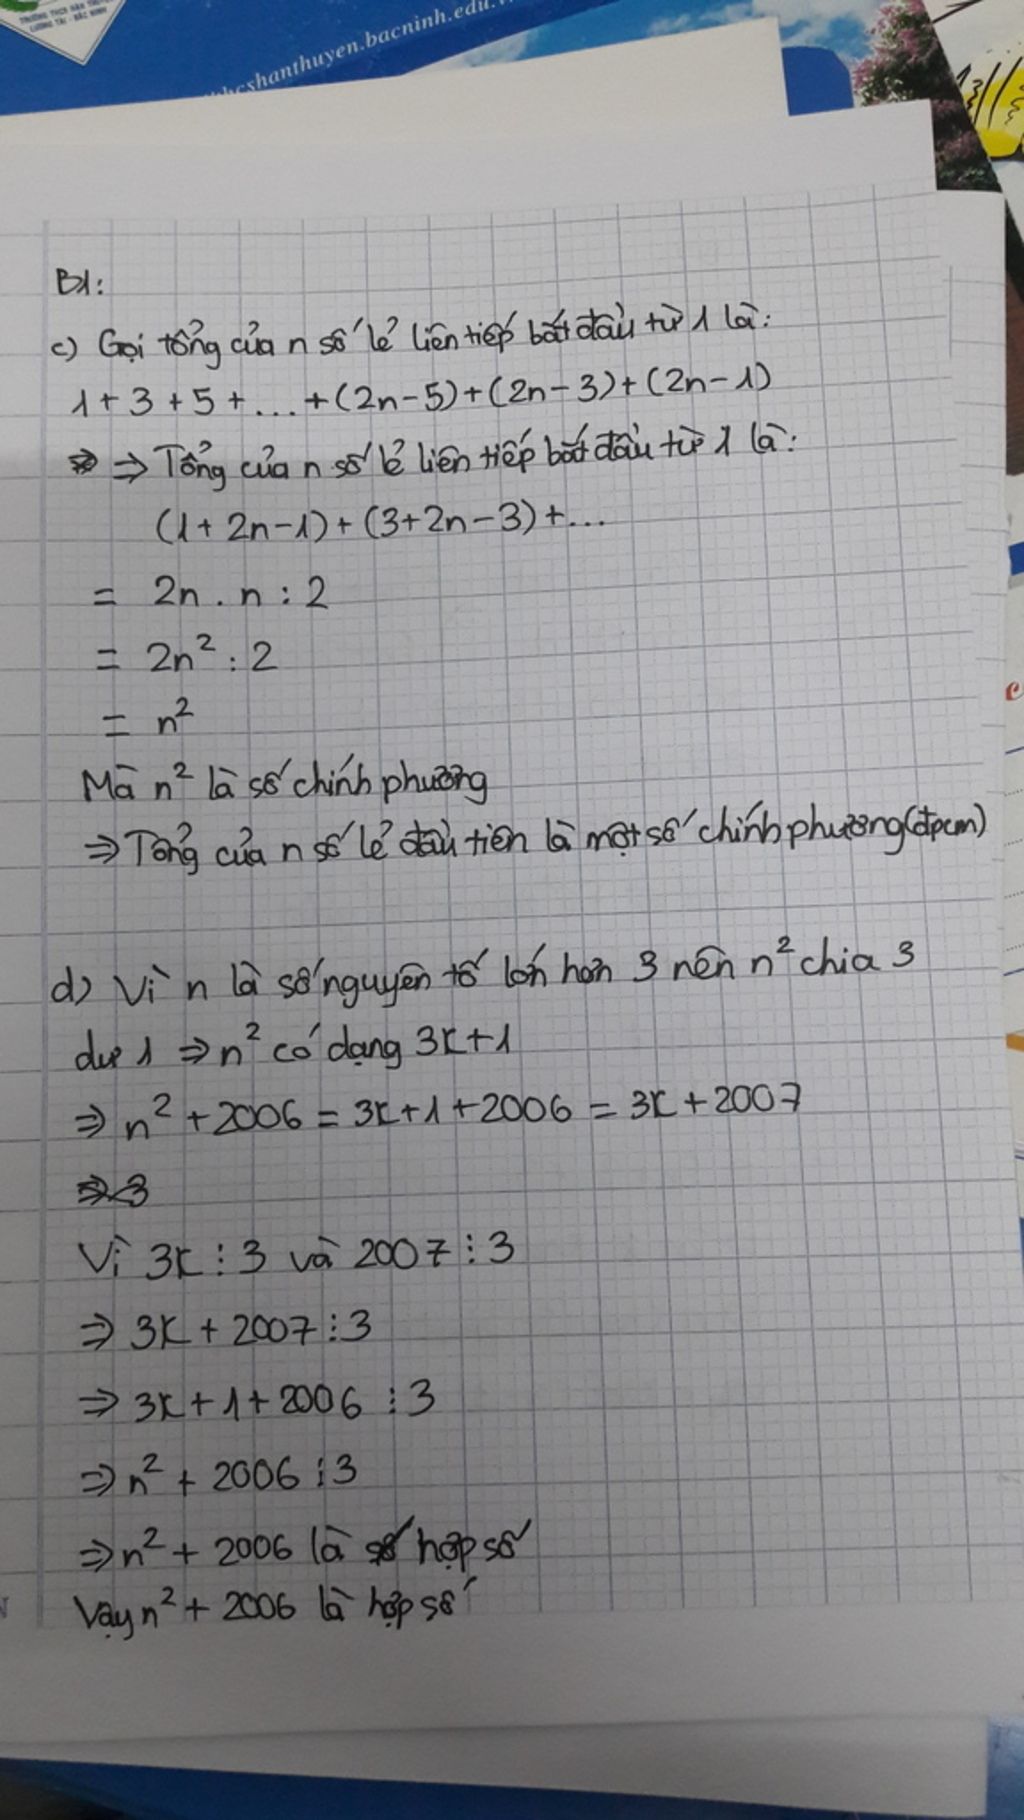 TRƯỜNG THCS HÀN THUYÊN
LƯƠNG TÀI - BẮC NINH
thcshanthuyen.bacninh.edu.v
B1:
c) Gọi tổng của n số lẻ liên tiếp bắt đầu từ 1 là:
1 + 3 + 5 + ... + (2n - 5) + (2n - 3) + (2n - 1)
⇒ Tổng của n số lẻ liên tiếp bắt đầu từ 1 là:
(1 + 2n - 1) + (3 + 2n - 3) + ...
= 2n . n : 2
= 2n² : 2
= n²
Mà n² là số chính phương
⇒ Tổng của n số lẻ đầu tiên là một số chính phương (đpcm)
d) Vì n là số nguyên tố lớn hơn 3 nên n² chia 3
dư 1 ⇒ n² có dạng 3k+1
⇒ n² + 2006 = 3k + 1 + 2006 = 3k + 2007
Vì 3k ⋮ 3 và 2007 ⋮ 3
⇒ 3k + 2007 ⋮ 3
⇒ 3k + 1 + 2006 ⋮ 3
⇒ n² + 2006 ⋮ 3
⇒ n² + 2006 là hợp số
Vậy n² + 2006 là hợp số